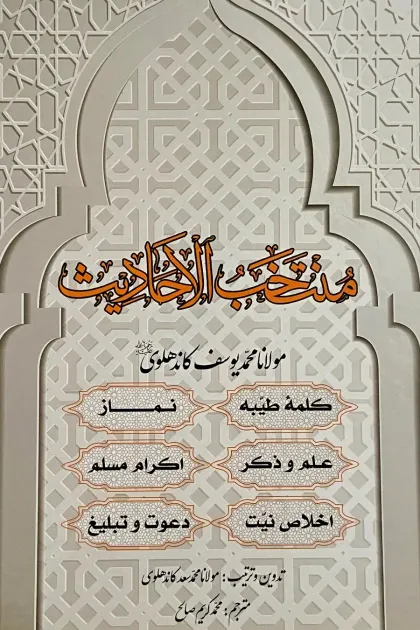 مُنتَخَبُ الأَحَادِيث
مولانا محمّد یوسف کاندهلوی رحمه‌الله
کلمهٔ طیّبه نـمـاز
عـلـم و ذکـر اکـرام مسلم
اخلاص نیّت دعوت و تبلیغ
تدوین و ترتیب: مولانا محمّد سعد کاندهلوی
مترجم: محمّد کریم صالح